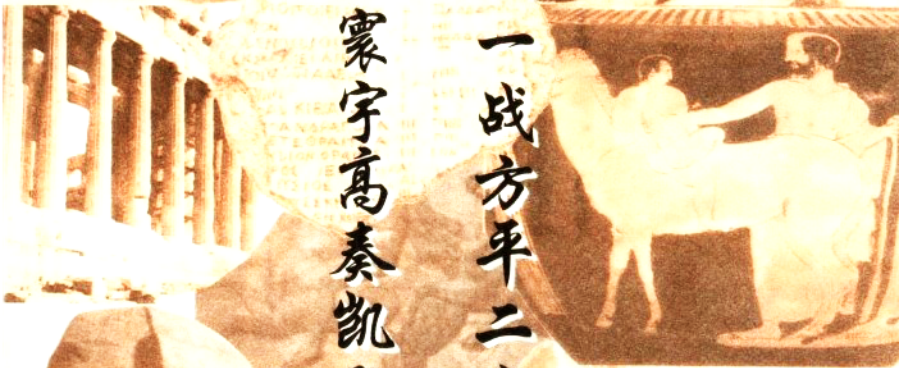 一战方平二
寰宇高奏凯